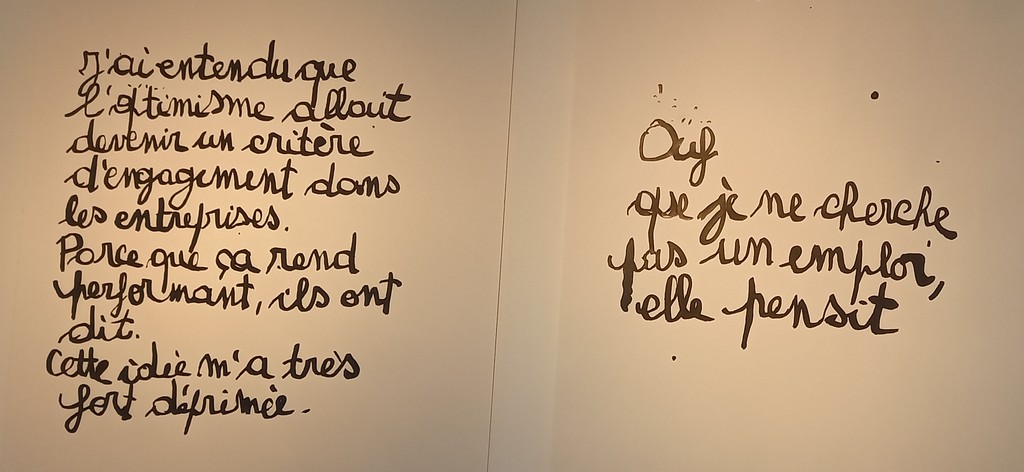 J'ai entendu que
l'optimisme allait
devenir un critère
d'engagement dans
les entreprises.
Parce que ça rend
performant, ils ont
dit.
Cette idée m'a très
fort déprimée.
Ouf
que je ne cherche
pas un emploi,
elle pensit